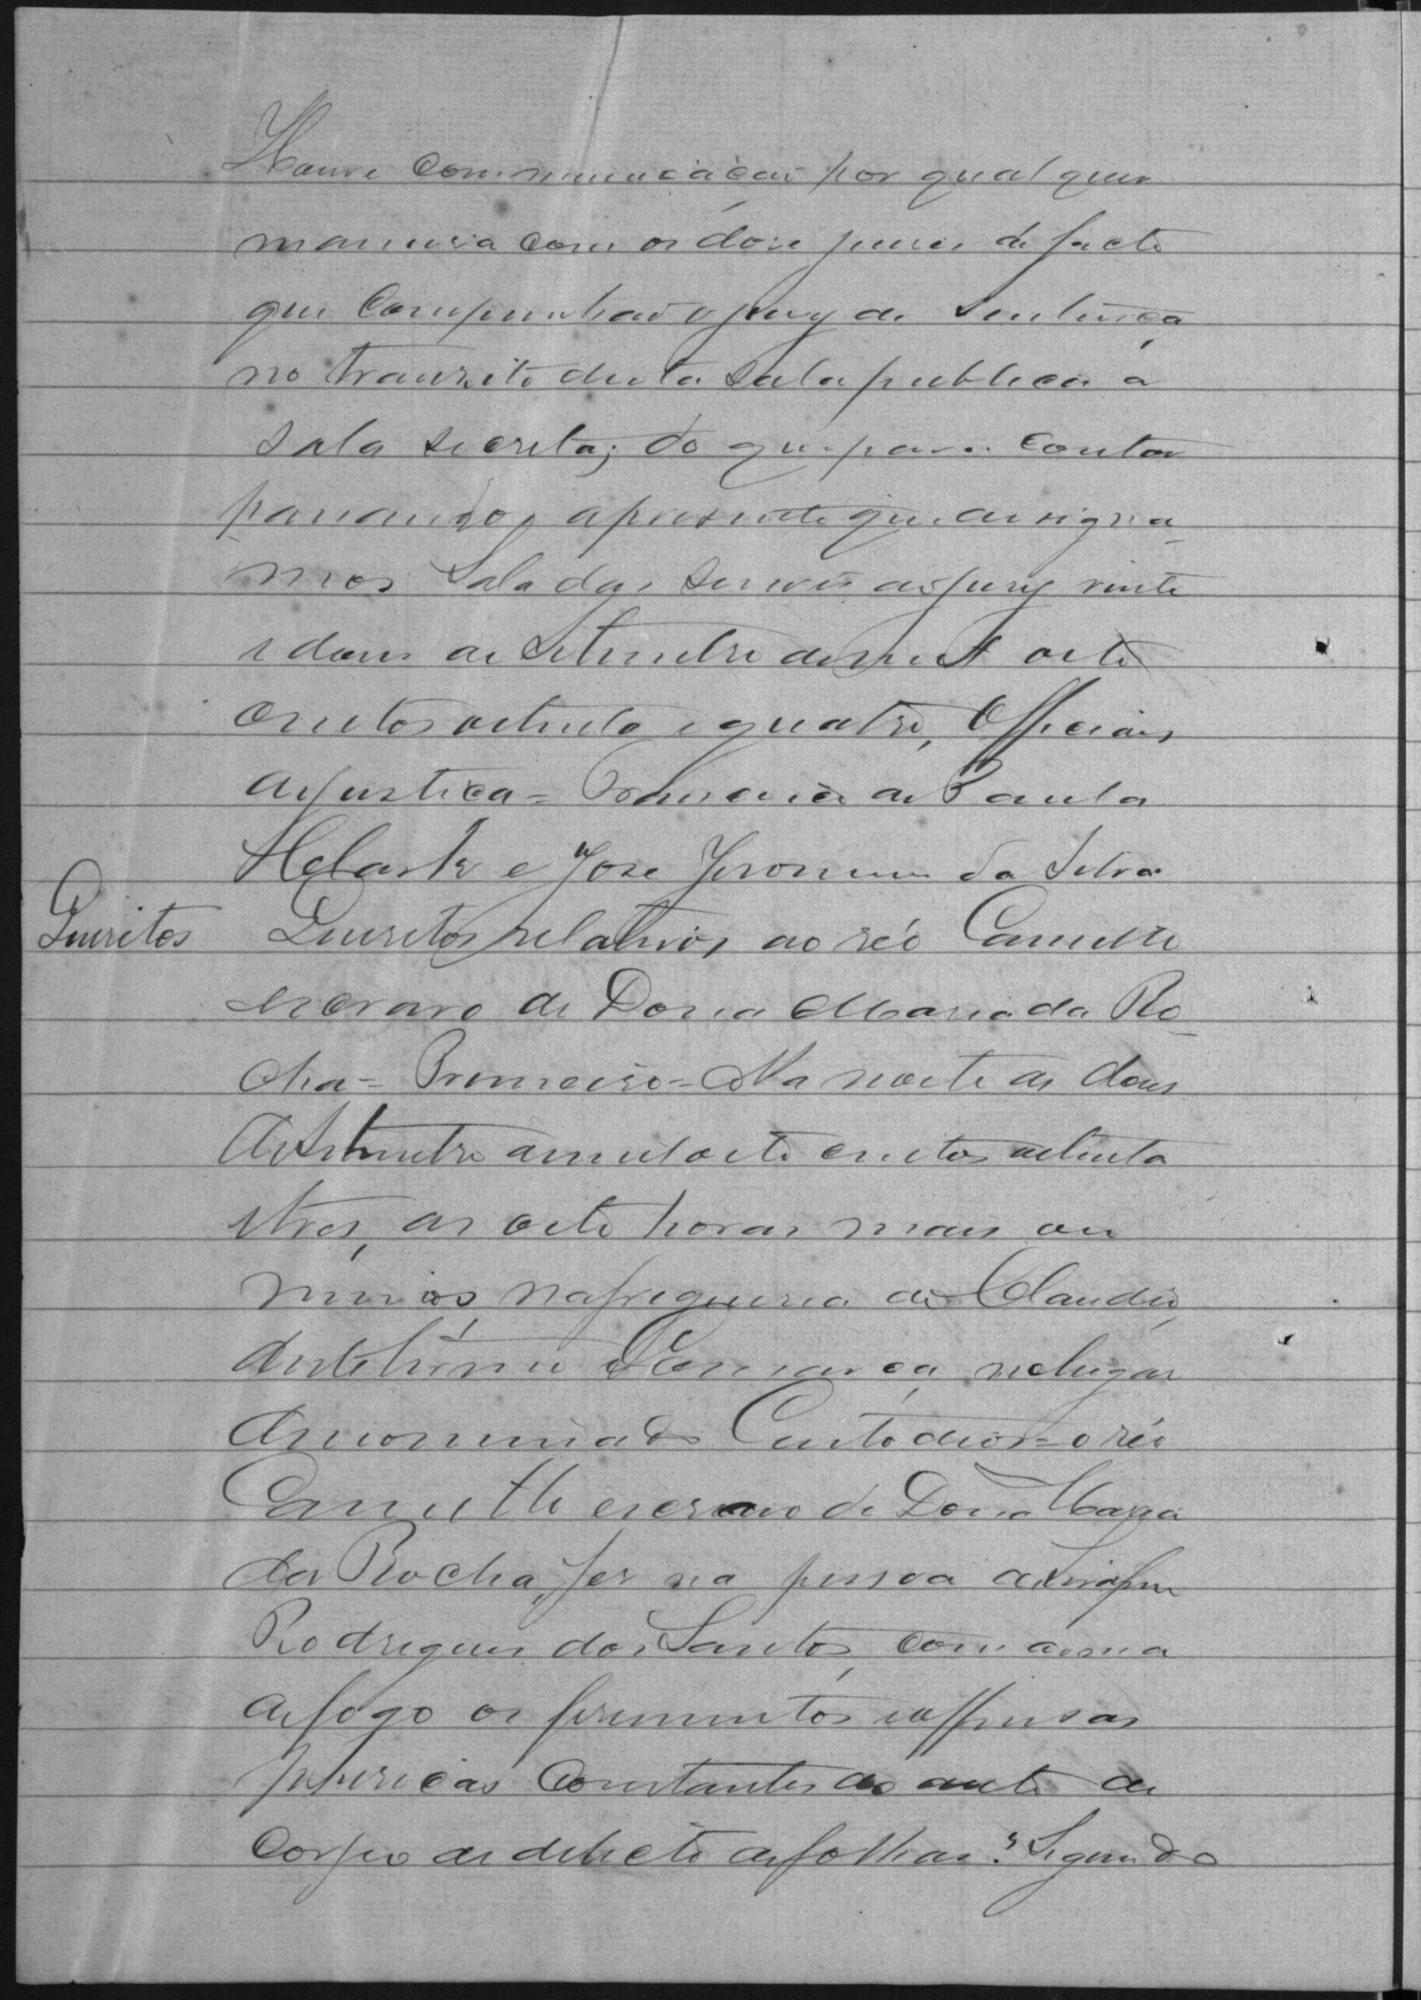 Houve communicação por qualquer
maneira com os dose juises de facto
que compunhão o jury de sentença
no transito desta sala publica a
sala secreta; do que para contar
passamos a presente que assigna-
mos Sala das sessões do jury vinte
e dous de Setembro de mil oito
centos oitenta e quatro, Officiaes
de justiça = Francisco de Paula
e José Jeronimo da Silva
Quesitos Quesitos relativos ao réo Camillo
escravo de Dona Maria da Ro-
cha = Primeiro = Na noite de dous
de Setembro de mil oito centos oitenta
e tres, as oito horas mais ou
menos, na freguesia de Claudio,
deste termo e Comarca, no lugar
denominado Custodios = o réo
Camillo escravo de Dona Maria
da Rocha, fez na pessoa de Serafim
Rodrigues dos Santos, com arma
de fogo os ferimentos e offensas
phisicas constantes do auto de
corpo de delicto de folhas? Segundo